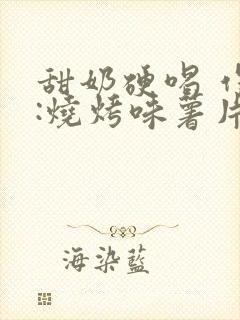 甜奶硬唱
:燒烤味薯片
海染藍